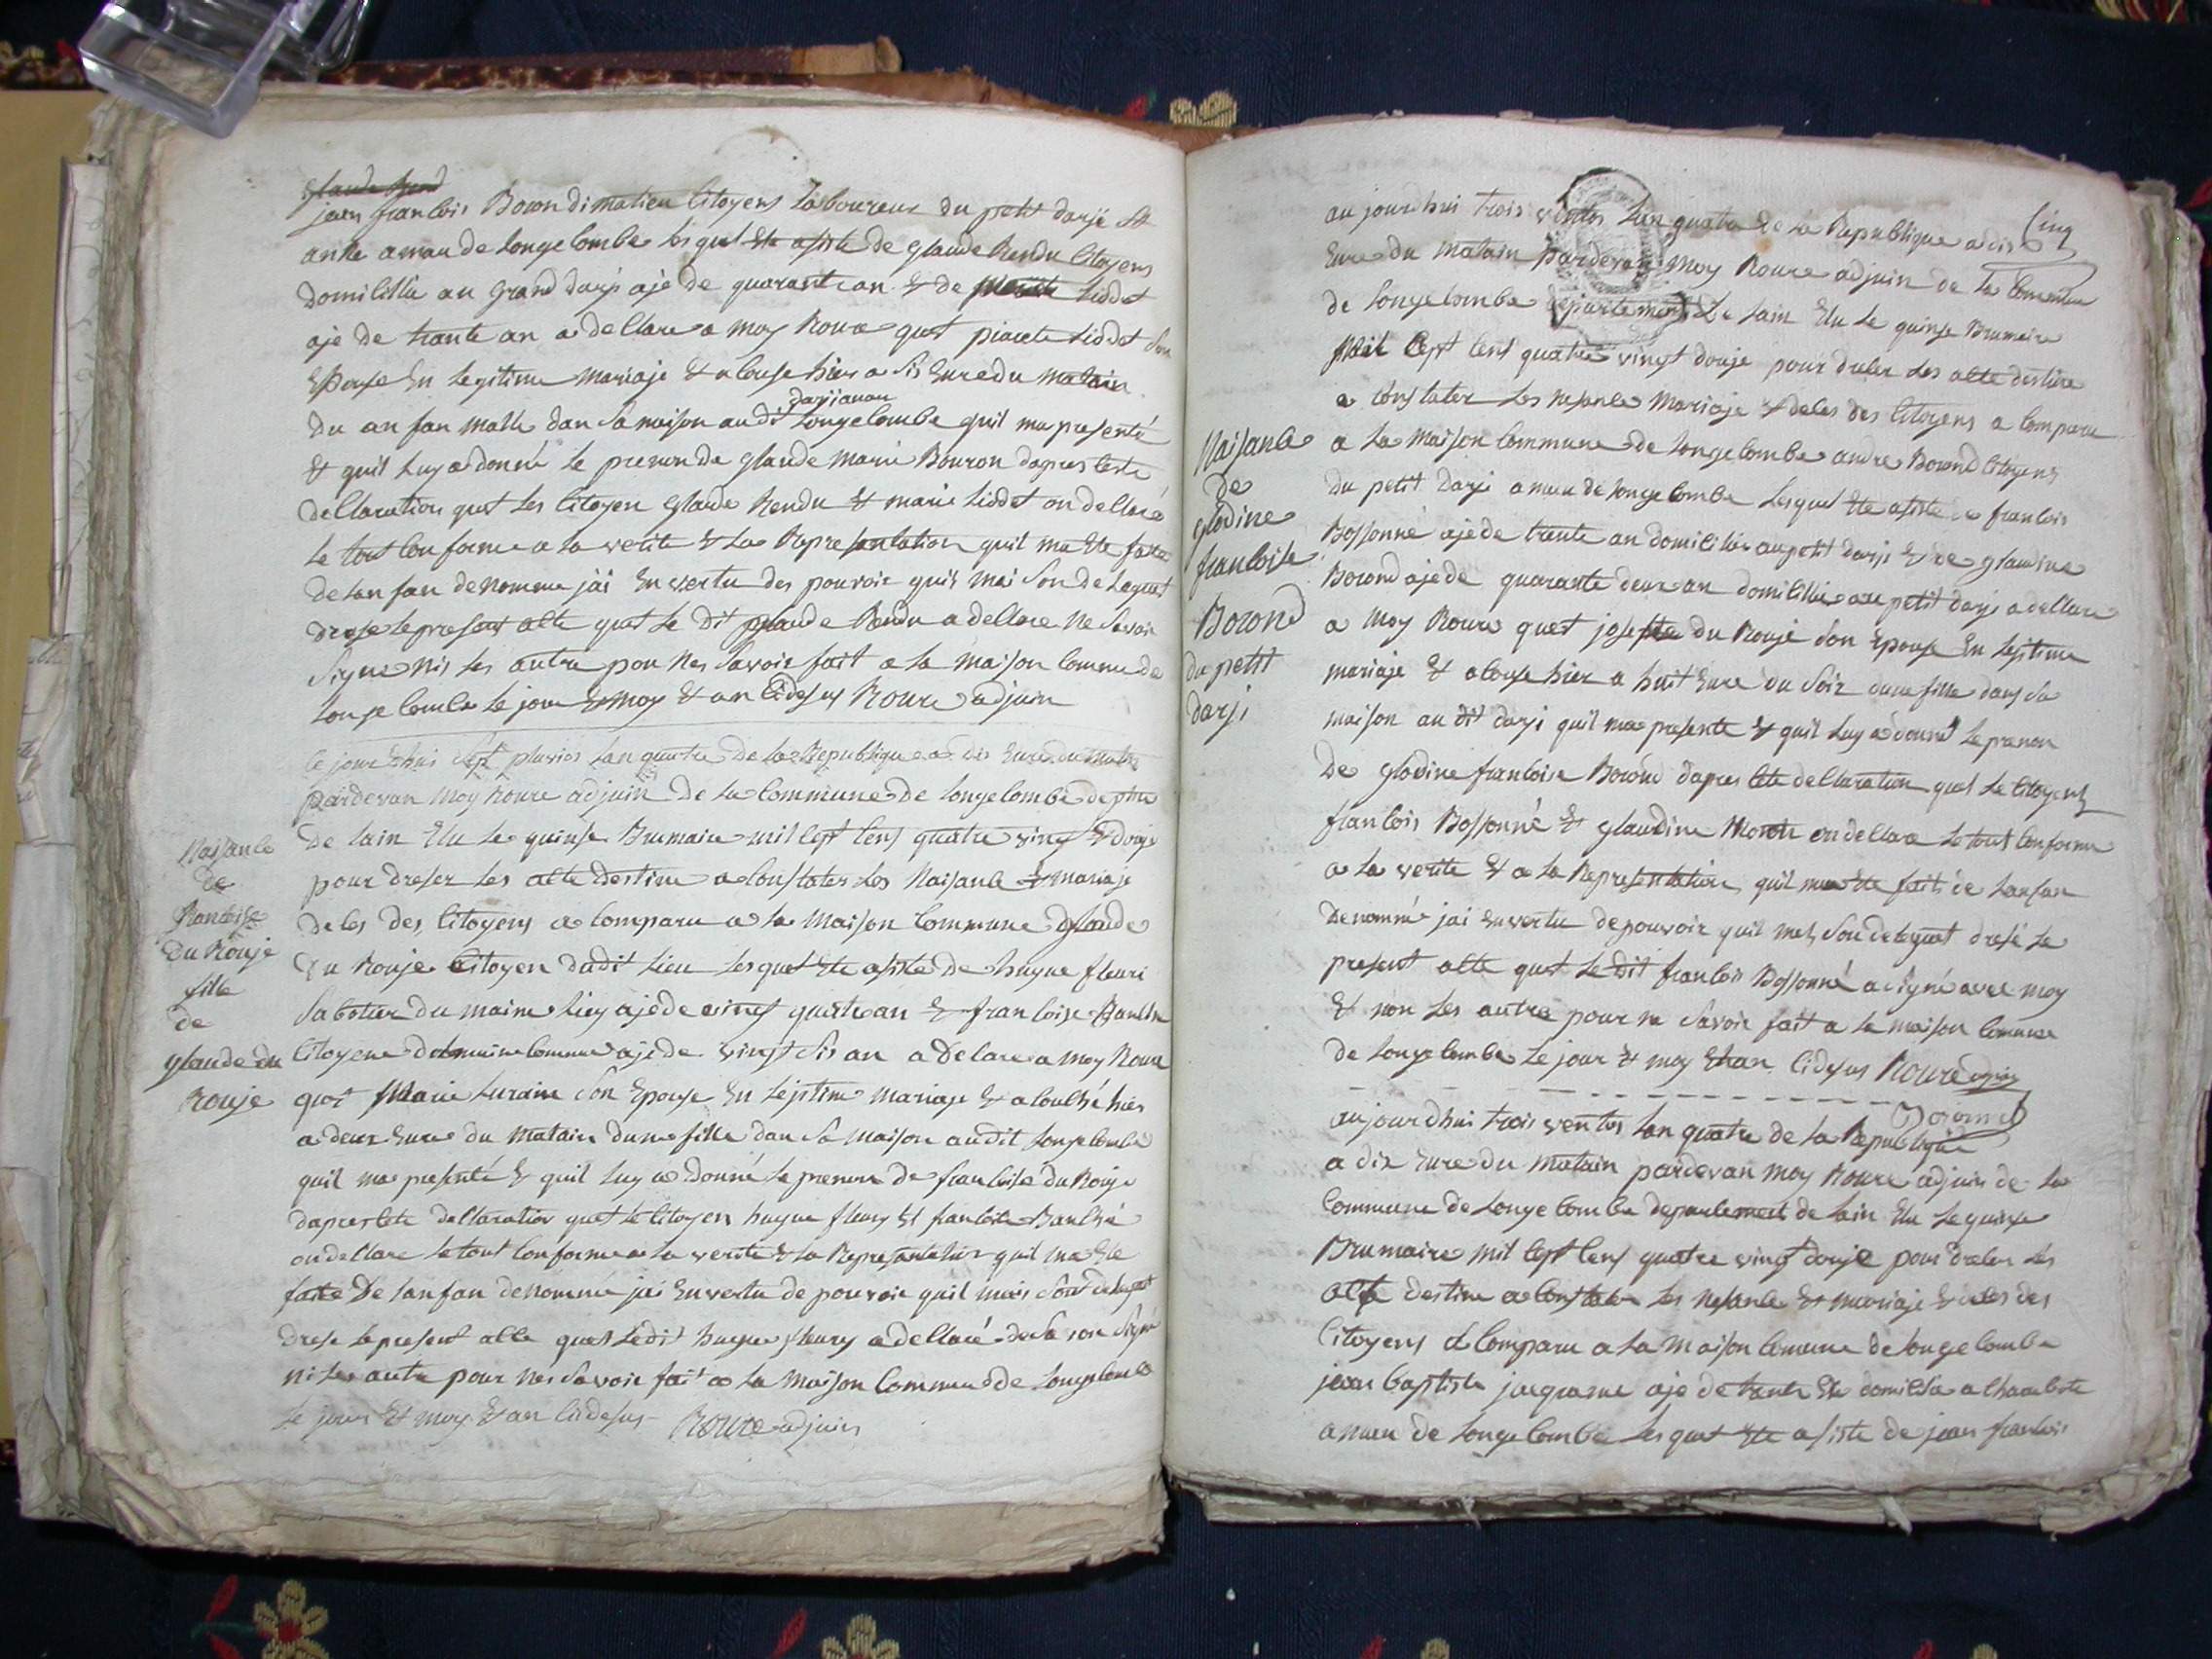 jean francois Boron di matieu Citoyens Laboureur du petit darji
amau de Longecombe lesquel Ete asiste de glaude Rendu Citoyens
domicillie au grand darji aje de quarante an & de Liddet
aje de trante an a dellare a moy Roure quet Liddet Son
Epouse En Legitime mariaje Et acouse hier a sis Eure du matain
darjianau
du an fan malle dan Sa maison audit Longecombe quil ma presenté
& quil Luy a donné Le prenon de glaude marie Bouron dapres ceste
dellaration quet Les Citoyen glaude Rendu & marie Liddet on dellaré
Le tout Conforme a la verite & La Representation quil ma Ete faite
de Lanfan denomme jai En vertu des pouvoir quis mai Son delaguet
drese le present alte quet Le dit glaude Rendu a dellare ne Savoir
Signe nis Les autre pour nes Savoir fait a la maison Commune de
Longe Combe Le jour & moy & an Cidesus Roure adjuin
Ce jourdhui sept pluvios Lan quatre de la Republique a dis Eure du matin
pardevan moy Roure adjuin de la Commune de Longecombe
de Lain Elu Le quinse Brumaire mil sept cens quatre ving & douje
pour dreser Les alte destine a Constater Les Naisance & mariaje
deces des Citoyens a Comparu a La Maison Commune glaude
du Rouje Citoyen dudit Lieu Lesquel Ete asiste de huyue fleuri
Sabotier du maime Lieu aje de vingt quatre an & francoise
Citoyene du maime Commune aje de vingt sis an a delare a moy Roure
quet Marie Luraine Son Epouse En Lejitime mariaje & acouché hier
a deux Eure du matain dune fille dan Sa maison audit Longecombe
quil ma presenté & quil Luy a donné Le prenon de francoise du Rouje
dapres cete dellaration quet Le Citoyen huyue fleury Et francoise
on dellare Le tout Conforme a La verite & La Representation quil ma Ete
faite de Lanfan denommé jai En vertu de pouvoir quil mais Sont delaguet
drese Le present alte quet Ledit huyue fleury a dellaré de Sa
ni Les autre pour nes Savoir fait a La Maison Commune de Longecombe
Le jour & moy & an Cidesus Roure adjuin
Naisance
de
francoise
du Rouje
fille
de
glaude du
Rouje
Cinq
aujourdhui trois ventos Lan quatre de La Republique a dis
Eure du matain pardevan moy Roure adjuin de La Commune
de Longecombe departement de Lain Elu Le quinse Brumaire
Mil sept cens quatre vingt douje pour dreler Les alte destine
a Constater Les nesance Mariaje & deces des Citoyens a Comparu
a La Maison Commune de Longecombe andre Borond Citoyens
du petit darji amau de Longecombe Lesquel Ete asiste de francois
Bossonné aje de trente an domicillie au petit darji & de glaudine
Borond aje de quarante deux an domicillie au petit darji a dellare
a moy Roure quet josepte du Rouje Son Epouse En Lejitime
mariaje & acouse hier a huit Eure du Soir dune fille dans Sa
maison au dit darji quil ma presente & quil Luy a donné Le prenon
de glodine francoise Borond dapres cete dellaration quel Le Citoyens
francois Bossonné & glaudine on dellare Le tout Conforme
a La verite & a La Representation quil ma Ete faite de Lanfan
denommé jai En vertu de pouvoir quil mes Son delaguet dresé Le
present alte quet Le dit francois Bossonné a Signé avec moy
& non Les autre pour ne Savoir fait a La maison Commune
de Longecombe Le jour & moy Et an Cidesus Roure adjuin
Naisance
de
glodine
francoise
Borond
du petit
darji
aujourdhui trois ventos Lan quatre de La Republique
a dix Eure du matain pardevan moy Roure adjuin de La
Commune de Longecombe departement de Lain Elu Le quinse
Brumaire mil sept cens quatre vingt douje pour dreler Les
alte destine a Constater Les nesance & mariaje & deces des
Citoyens a Comparu a La Maison Comune de Longecombe
jean baptiste aje de trente Ete domicillie a
amau de Longecombe Lesquel Ete asiste de jean francois